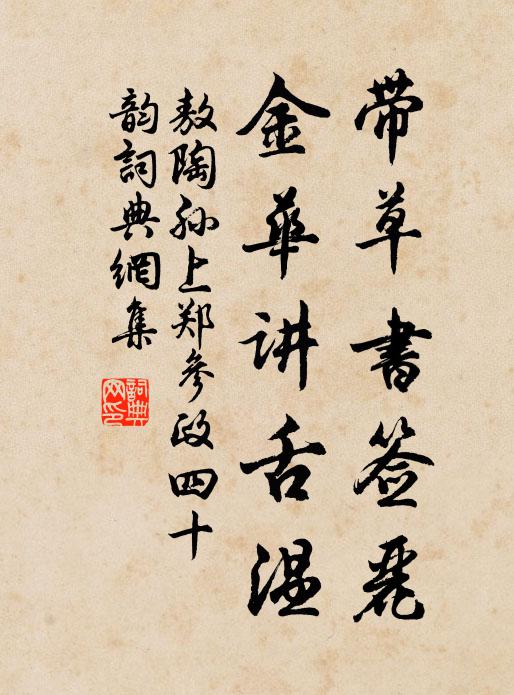 带草书签丽
金华讲舌温
敖陶孙上郑参政四十
韵词典網集
詞典網印